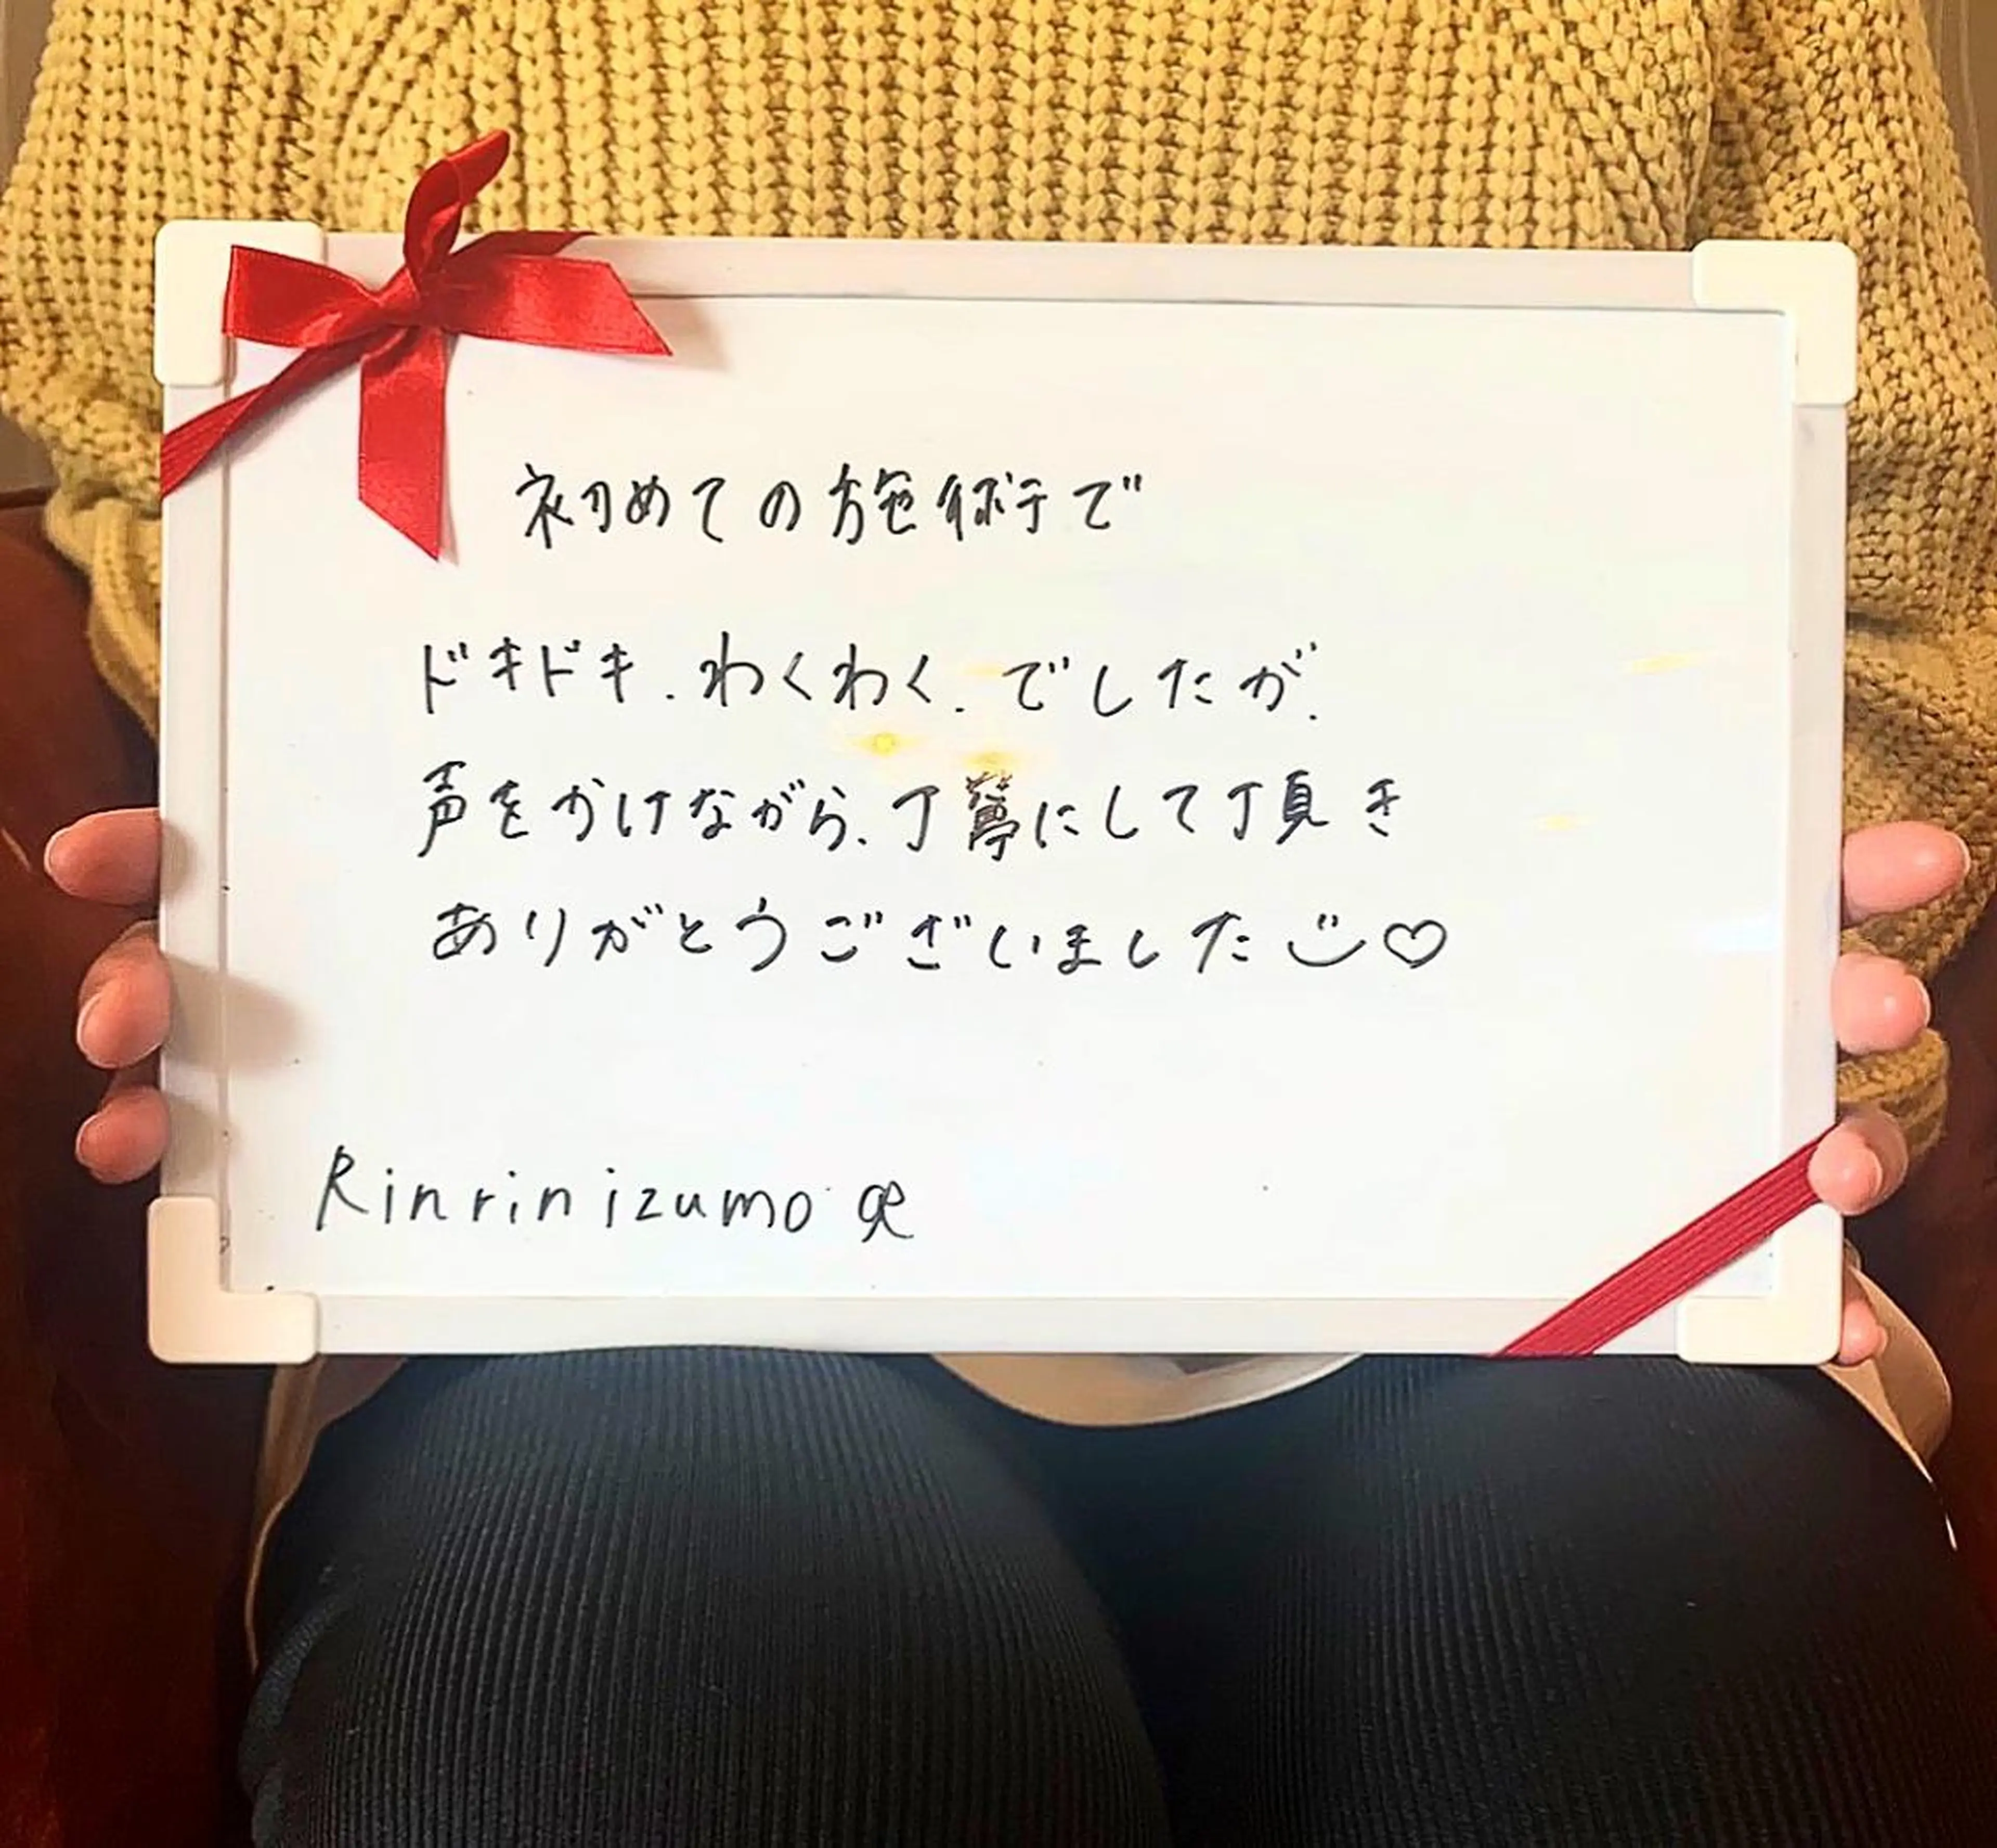 初めての施術で
ドキドキ.わくわく.でしたが.
声をかけながら.丁寧にして頂き
ありがとうございました
Rinrin izumo